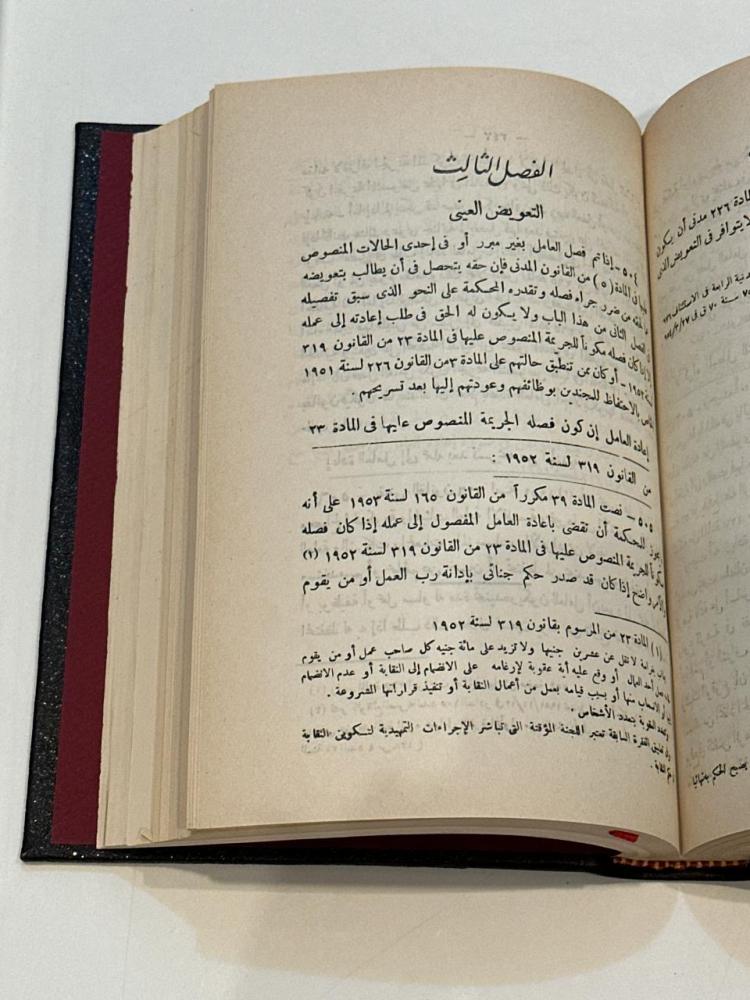 الفصل الثالث
التعويض العينى
٥٠٤ - إذا تم فصل العامل بغير مبرر أو فى إحدى الحالات المنصوص
عليها فى المادة (٥) من القانون المدنى فإن حقه يتحصل فى أن يطالب بتعويضه
عما لحقه من ضرر جراء فصله وتقدره المحكمة على النحو الذى سبق تفصيله
فى الفصل الثانى من هذا الباب ولا يسكون له الحق فى طلب إعادته إلى عمله
إلا إذا كان فصله مكوناً للجريمة المنصوص عليها فى المادة ٢٣ من القانون ٣١٩
لسنة ١٩٥٢ - أو كان ممن تنطبق حالتهم على المادة ٣ من القانون ٢٢٦ لسنة ١٩٥١
الخاص بالاحتفاظ للمجندين بوظائفهم وعودتهم إليها بعد تسريحهم .
إعادة العامل إن كون فصله الجريمة المنصوص عليها فى المادة ٢٣
من القانون ٣١٩ لسنة ١٩٥٢ :
٥٠٥ - نصت المادة ٣٩ مكرراً من القانون ١٦٥ لسنة ١٩٥٣ على أنه
يجوز للمحكمة أن تقضى باعادة العامل المفصول إلى عمله إذا كان فصله
مكوناً للجريمة المنصوص عليها فى المادة ٢٣ من القانون ٣١٩ لسنة ١٩٥٢ (١)
والأمر واضح إذا كان قد صدر حكم جنائى بإدانة رب العمل أو من يقوم
(١) المادة ٢٣ من المرسوم بقانون ٣١٩ لسنة ١٩٥٢
يعاقب بغرامة لا تقل عن عشرين جنيها ولا تزيد على مائة جنيه كل صاحب عمل أو من يقوم
مقامه فصل أحد العمال أو وقع عليه أية عقوبة لإرغامه على الانضمام إلى النقابة أو عدم الانضمام
إليها أو الانسحاب منها أو بسبب قيامه بعمل من أعمال النقابة أو تنفيذ قراراتها المشروعة .
وتتعدد العقوبة بتعدد الأشخاص .
وفى تطبيق الفقرة السابقة تعتبر اللجنة المؤقتة التى تباشر الإجراءات التمهيدية لتسكوين النقابة
فى حكم النقابة .
المادة ٢٢٦ مدنى أن يسكون
لا يتوافر فى التعويض الذى